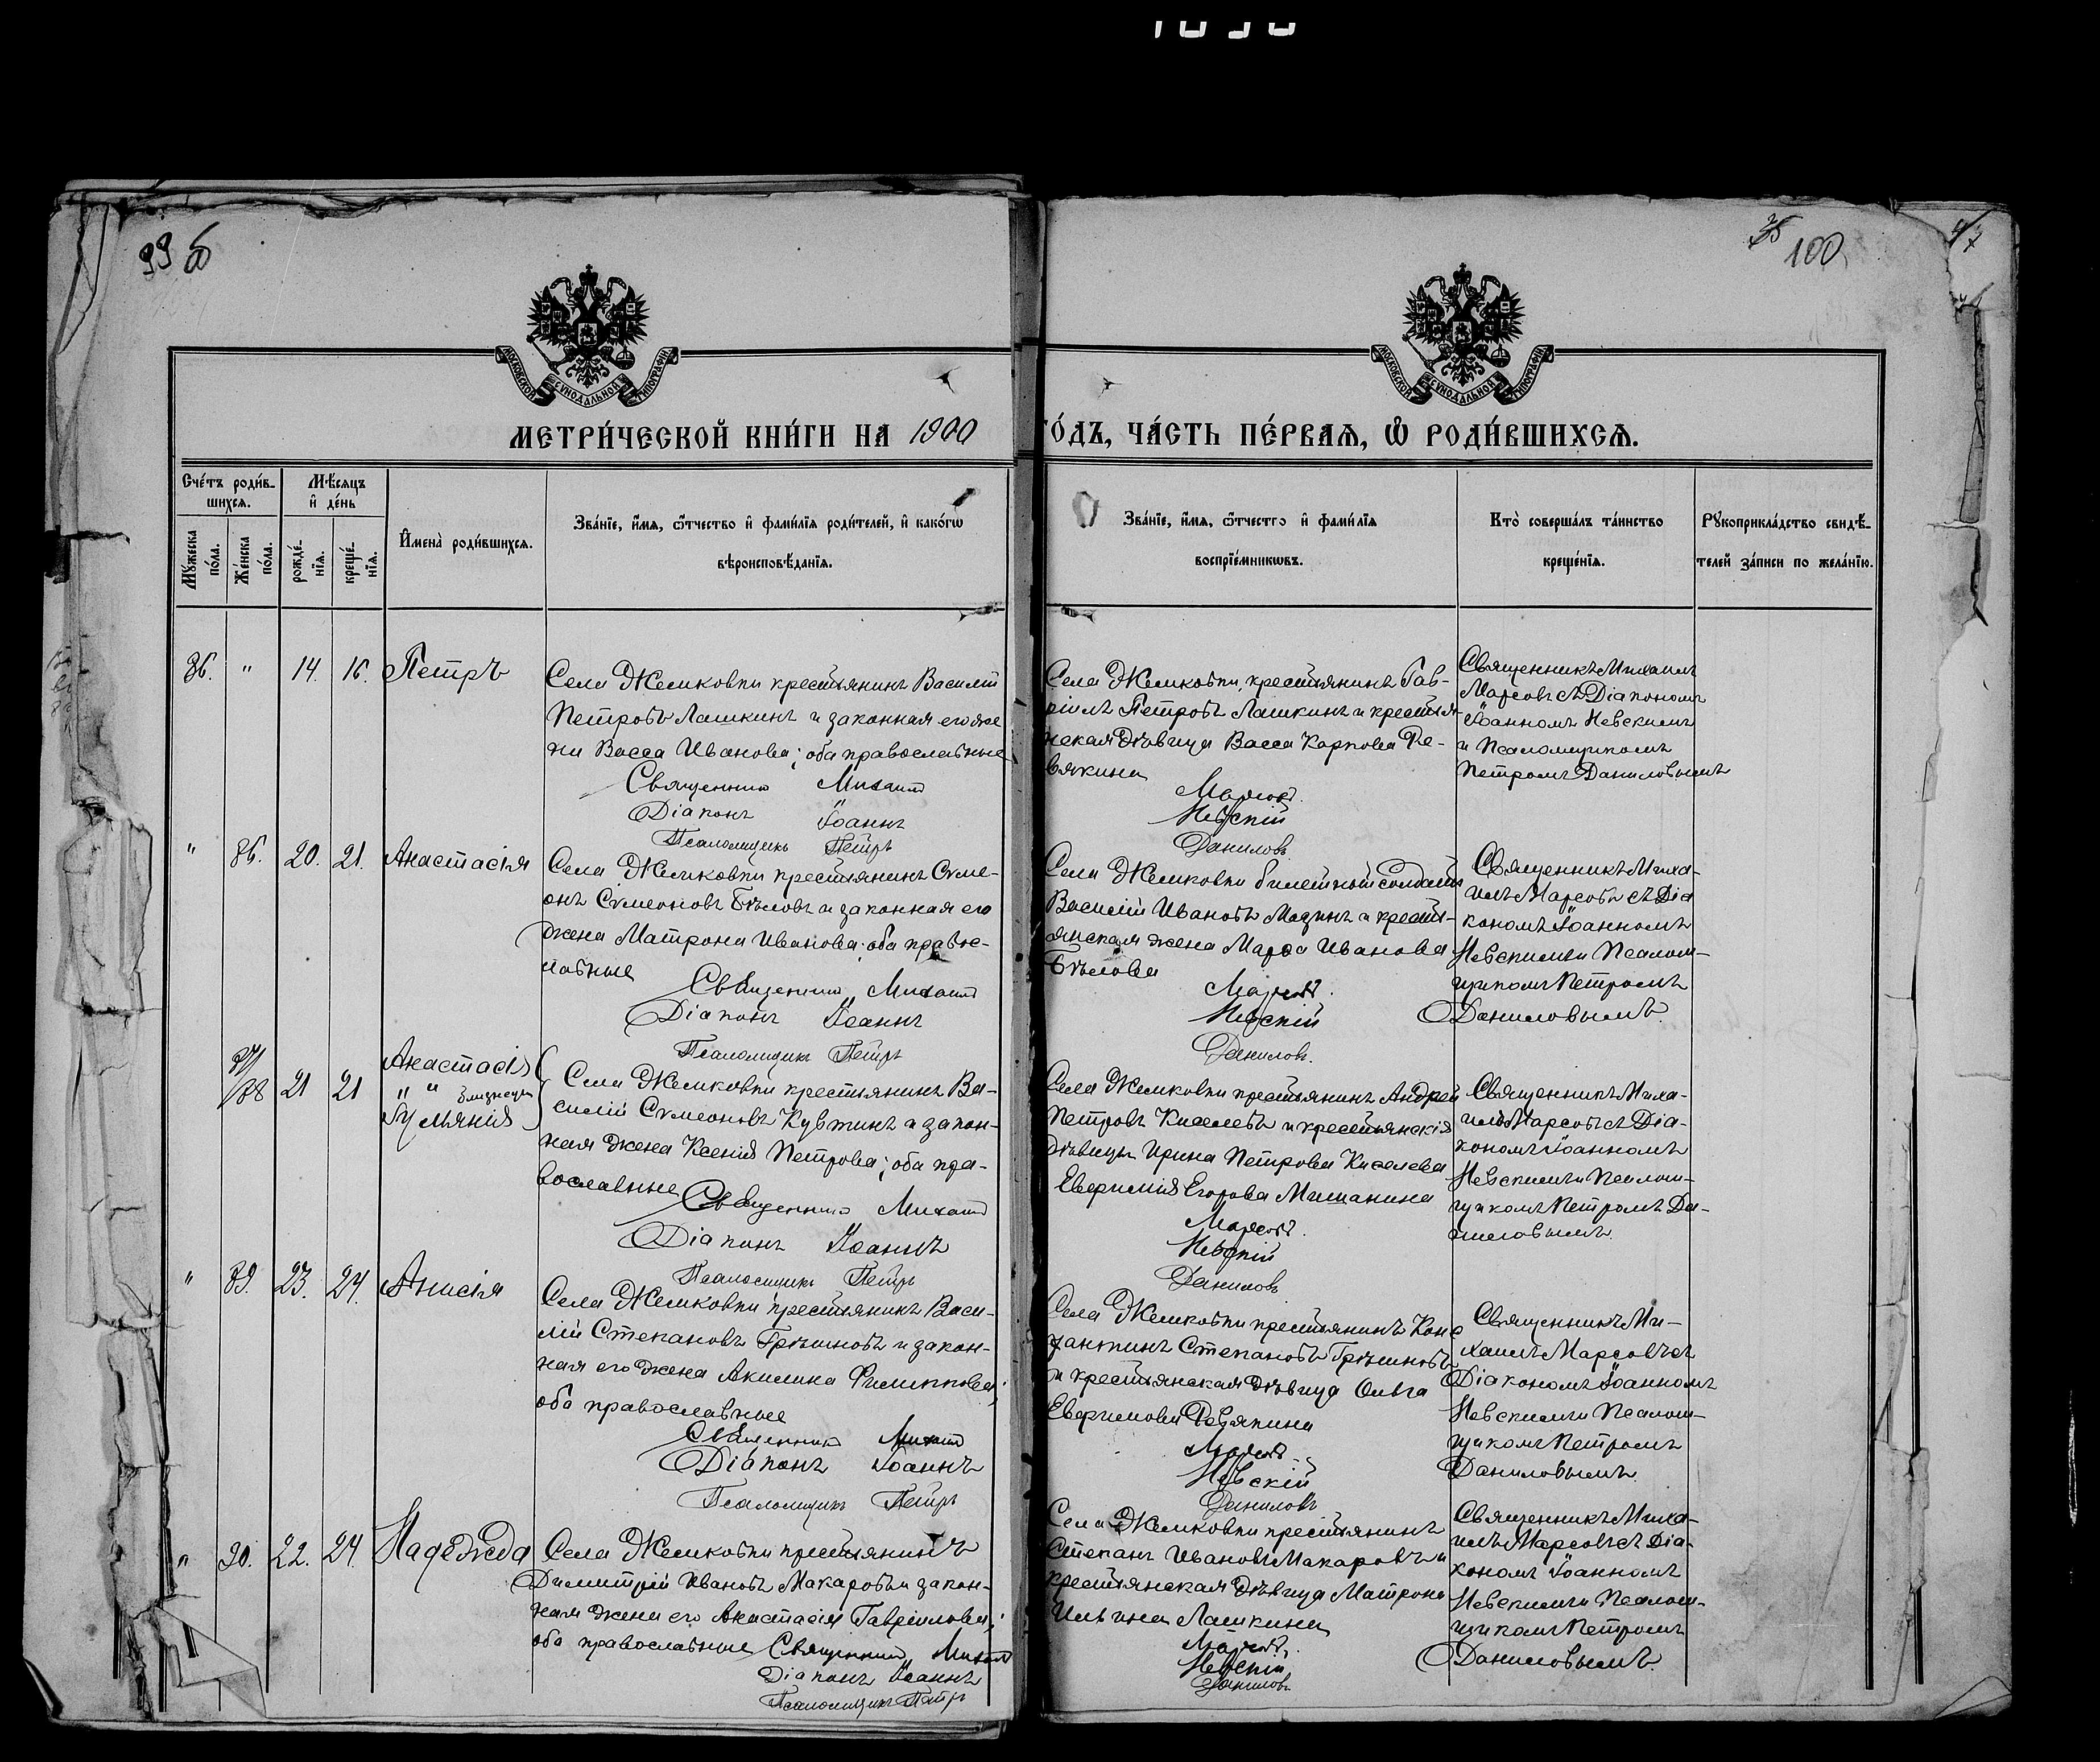 99 б
35
100
47
МОСКОВСКОЙ СѴНОДАЛЬНОЙ ТИПОГРАФІИ
МОСКОВСКОЙ СѴНОДАЛЬНОЙ ТИПОГРАФІИ
МЕТРИ́ЧЕСКОЙ КНИ́ГИ НА 1900
ГО́ДЪ, ЧА́СТЬ ПЕ́РВАѦ, Ѽ РОДИ́ВШИХСѦ.
Сче́тъ роди́в-
шихсѧ.
Мѣ́сѧцъ
и҆ де́нь
Мꙋ́жеска
по́ла.
Же́нска
по́ла.
рожде́-
нїѧ.
креще́-
нїѧ.
И҆мена̀ роди́вшихсѧ.
Зва́нїе, и҆́мѧ, ѻ҆́тчество и҆ фами́лїѧ роди́телей, и҆ како́гѡ
вѣроисповѣ́данїѧ.
Зва́нїе, и҆́мѧ, ѻ҆́тчестго и҆ фами́лїѧ
воспрїе́мникѡвъ.
Кто̀ соверша́лъ та́инство
креще́нїѧ.
Рꙋкоприкла́дство свидѣ́-
телей за́писи по жела́нїю.
86. " 14. 16. Петръ
Села Жемковки крестьянинъ Василій
Петровъ Лашкинъ и законная его же
на Васса Иванова; оба православные
Священникъ Михаилъ
Діаконъ Іоаннъ
Псаломщикъ Петръ
Села Жемковки, крестьянинъ Гав-
ріилъ Петровъ Лашкинъ и крестья-
нская дѣвица Васса Карпова Де-
вякина
Марсовъ.
Невскій
Даниловъ
Священникъ Михаилъ
Марсовъ съ Діакономъ
Іоанномъ Невскимъ
и Псаломщикомъ
Петромъ Даниловымъ
" 86. 20. 21. Анастасія
Села Жемковки крестьянинъ Сѵме-
онъ Сѵмеоновъ Бѣловъ и законная его
жена Матрона Иванова; оба правос-
лавные
Священникъ Михаилъ
Діаконъ Іоаннъ
Псаломщикъ Петръ
Села Жемковки билетный солдатъ
Василій Ивановъ Мазинъ и крестья-
янская жена Марѳа Иванова
Бѣлова
Марсовъ.
Невскій
Даниловъ.
Священникъ Миха-
илъ Марсовъ съ Діа
кономъ Іоанномъ
Невскимъ и Псалом-
щикомъ Петромъ
Даниловымъ.
87/88 21 21 Анастасія
" " близнецы
Іуліанія
Села Жемковки крестьянинъ Ва-
силій Сѵмеоновъ Кувшинъ и закон-
ная жена Ксенія Петрова; оба пра-
вославные
Священникъ Михаилъ
Діаконъ Іоаннъ
Псаломщикъ Петръ
Села Жемковки крестьянинъ Андрей
Петровъ Киселевъ и крестьянскія
дѣвицы Ирина Петрова Киселева
Евфимія Егорова Мишанина
Марсовъ.
Невскій
Даниловъ
Священникъ Миха-
илъ Марсовъ съ Діа-
кономъ Іоанномъ
Невскимъ и Псалом-
щикомъ Петромъ Да-
ниловымъ.
" 89. 23. 24. Анисія
Села Жемковки крестьянинъ Васи-
лій Степановъ Грѣшновъ и закон-
ная его жена Акилина Филиппова;
оба православные
Священникъ Михаилъ
Діаконъ Іоаннъ
Псаломщикъ Петръ
Села Жемковки крестьянинъ Конс
тантинъ Степановъ Грѣшновъ
и крестьянская дѣвица Ольга
Евфимова Девякина
Марсовъ.
Невскій
Даниловъ
Священникъ Ми-
хаилъ Марсовъ съ
Діакономъ Іоанномъ
Невскимъ и Псалом-
щикомъ Петромъ
Даниловымъ.
" 90. 22. 24. Надежда
Села Жемковки крестьянинъ
Димитрій Ивановъ Макаровъ и закон-
ная жена его Анастасія Гавріилова;
оба православные Священникъ Михаилъ
Діаконъ Іоаннъ
Псаломщикъ Петръ
Села Жемковки крестьянинъ
Степанъ Ивановъ Макаровъ и
крестьянская дѣвица Матрона
Ильина Лашкина
Марсовъ.
Невскій
Даниловъ
Священникъ Миха-
илъ Марсовъ съ Діа-
кономъ Іоанномъ
Невскимъ и Псалом-
щикомъ Петромъ
Даниловымъ.